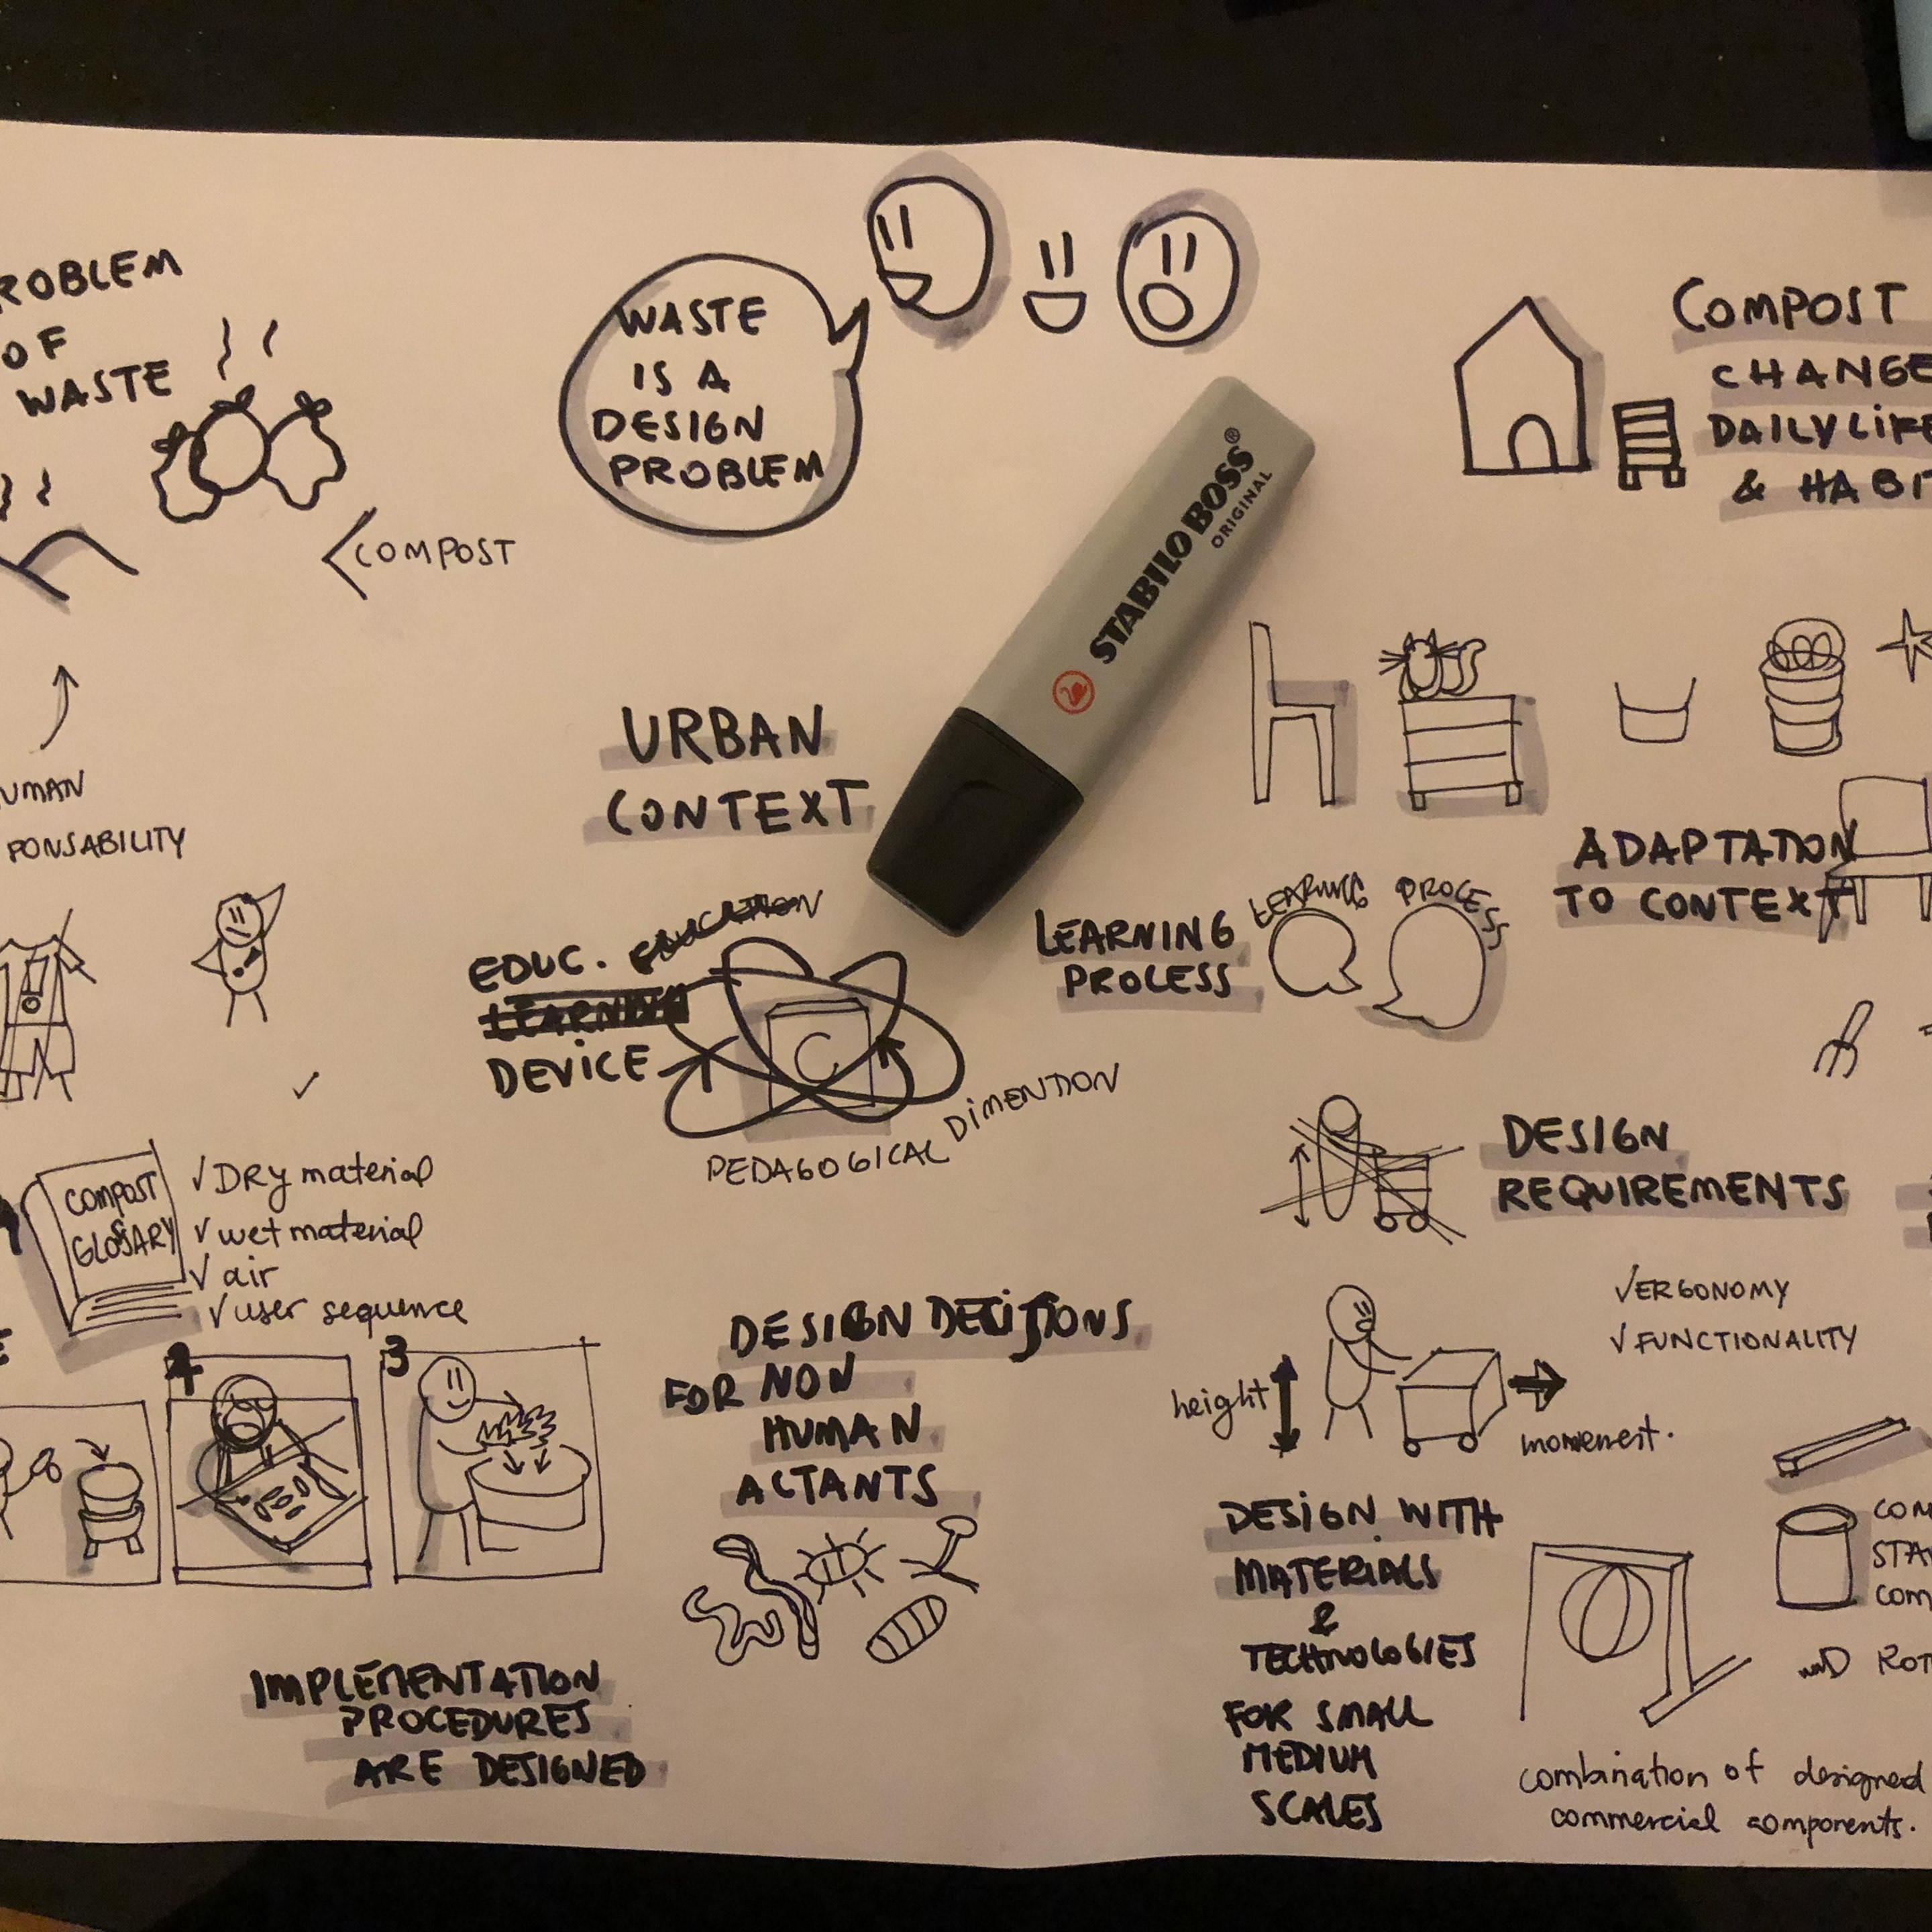 ROBLEM
OF
WASTE
COMPOST
UMAN
PONSABILITY
WASTE
IS A
DESIGN
PROBLEM
STABILO BOSS®
ORIGINAL
COMPOST
CHANGE
DAILY LIFE
& HABIT
URBAN
CONTEXT
EDUC. EDUCATION
LEARNING
DEVICE
C
PEDAGOGICAL DIMENTION
LEARNING
PROCESS
LEARNING PROCESS
ADAPTATION
TO CONTEXT
COMPOST
GLOSARY
√ DRY material
√ wet material
√ air
√ user sequence
4
3
IMPLEMENTATION
PROCEDURES
ARE DESIGNED
DESIGN DECISIONS
FOR NON
HUMAN
ACTANTS
DESIGN
REQUIREMENTS
√ERGONOMY
√FUNCTIONALITY
height
movement.
DESIGN WITH
MATERIALS
&
TECHNOLOGIES
FOR SMALL
MEDIUM
SCALES
COM
STA
COM
ROT
combination of designed
commercial components.